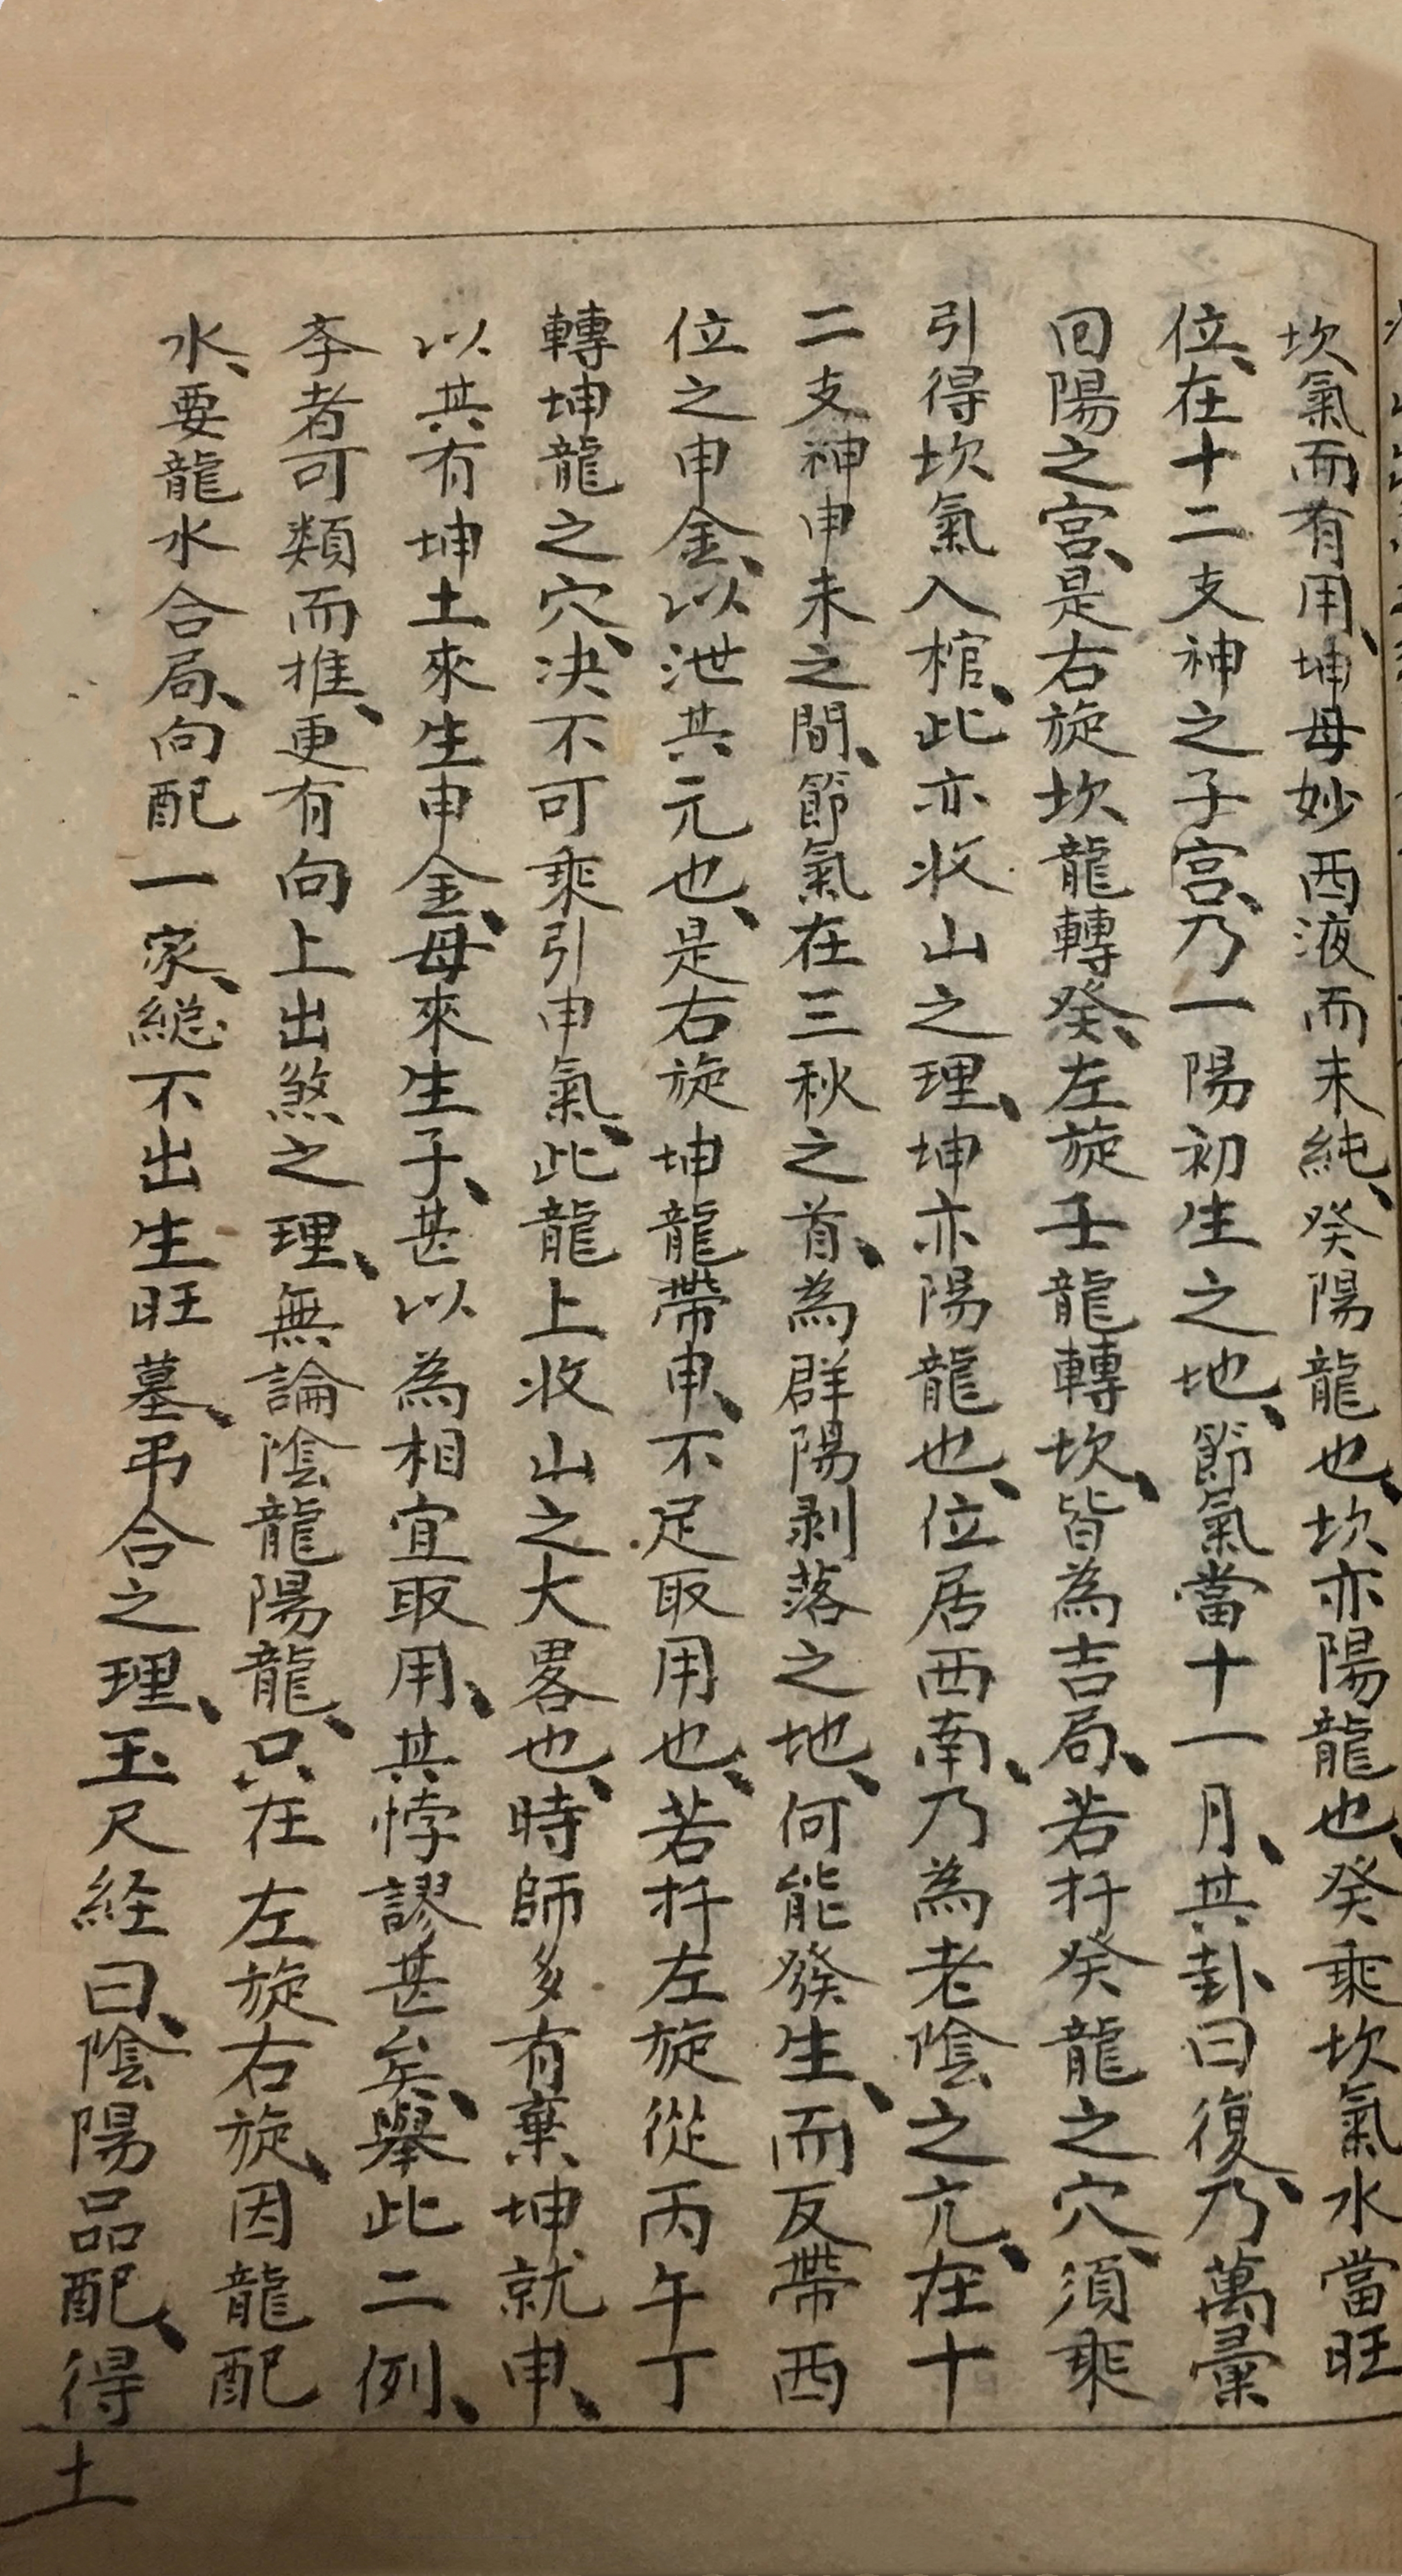 坎氣而有用、坤母妙酉液而未純、癸陽龍也、坎亦陽龍也、癸乘坎氣水當旺
位、在十二支神之子宮、乃一陽初生之地、節氣當十一月、其卦曰復、乃萬彙
回陽之宮、是右旋坎龍轉癸、左旋壬龍轉坎、皆為吉局、若扦癸龍之穴、須乘
引得坎氣入棺、此亦收山之理、坤亦陽龍也、位居西南、乃為老陰之亢、在十
二支神申未之間、節氣在三秋之首、為群陽剥落之地、何能發生、而反帶酉
位之申金、以泄其元也、是右旋坤龍帶申、不足取用也、若扦左旋從丙午丁
轉坤龍之穴、决不可乘引申氣、此龍上收山之大畧也、時師多有棄坤就申、
以其有坤土來生申金、母來生子、甚以為相宜取用、其悖謬甚矣、舉此二例、
斈者可類而推、更有向上出煞之理、無論陰龍陽龍、只在左旋右旋、因龍配
水、要龍水合局、向配一家、総不出生旺墓、弔合之理、玉尺経曰、陰陽品配、得
土